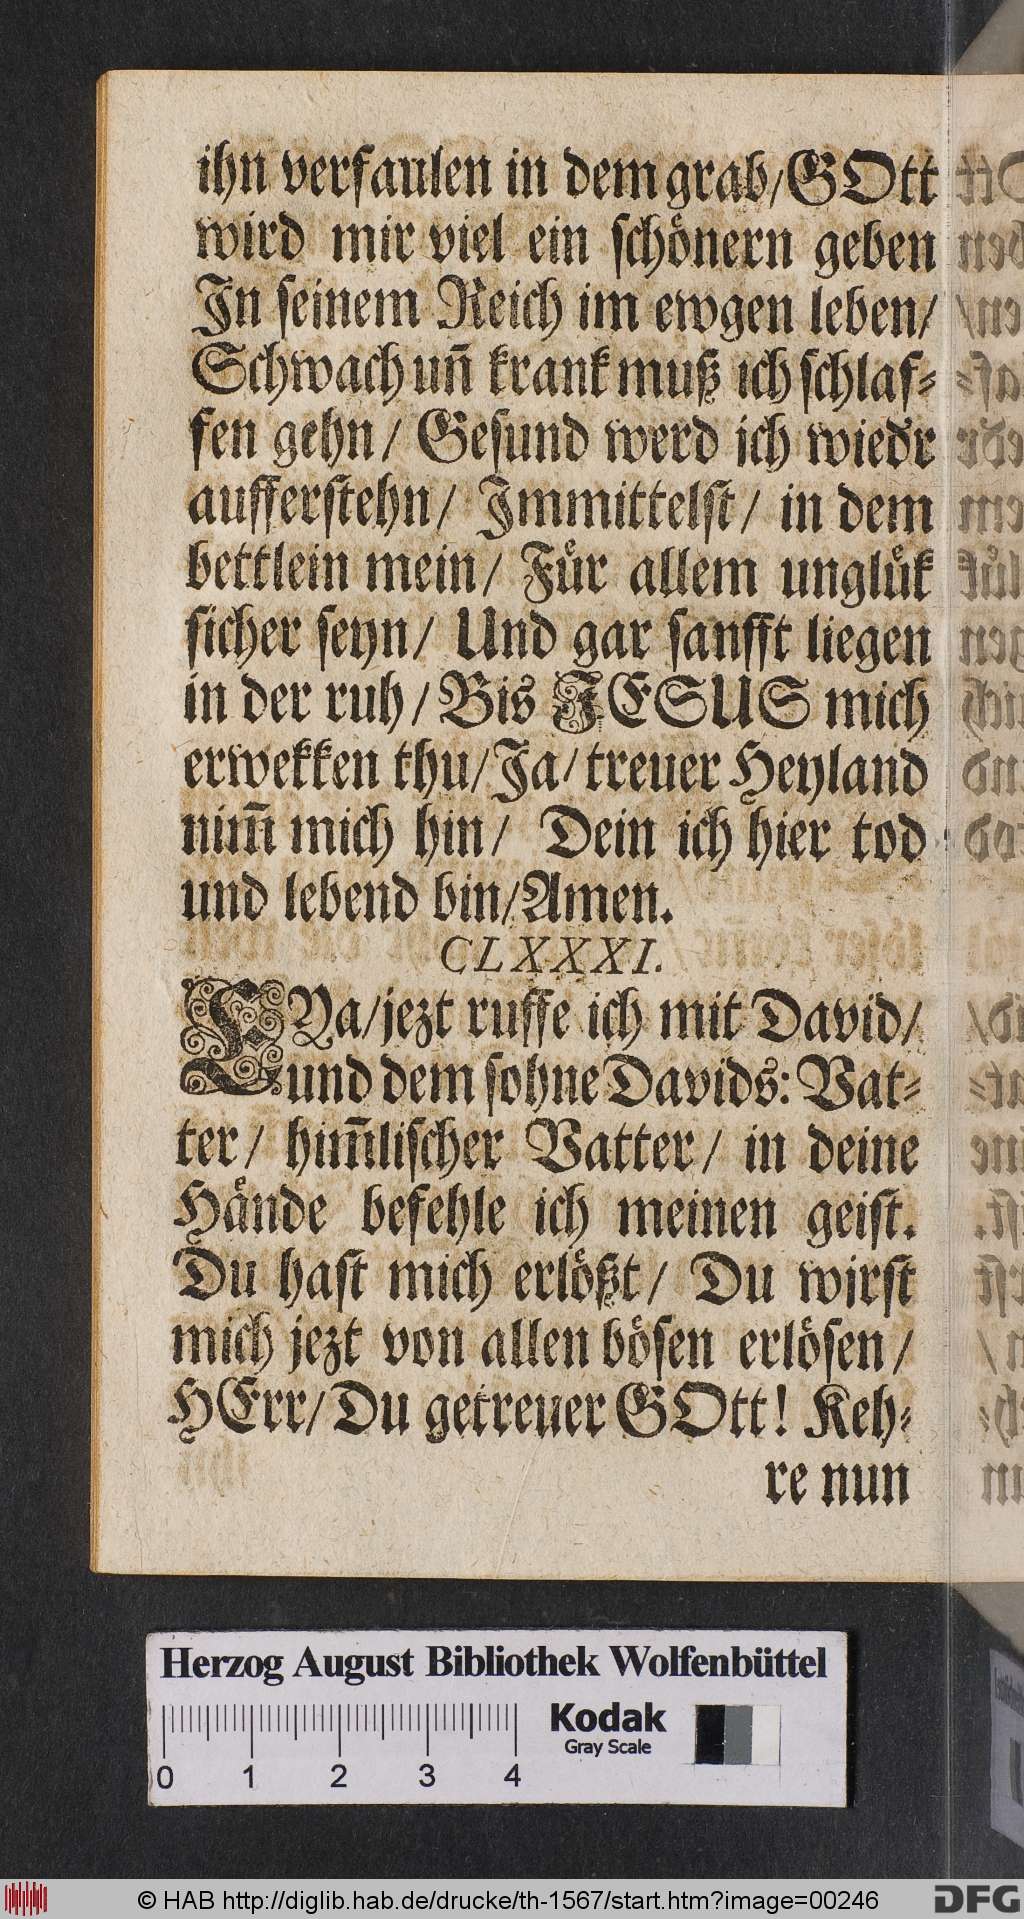 ihn verfaulen in dem grab/GOtt
wird mir viel ein schönern geben
In seinem Reich im ewgen leben/
Schwach un̄ krank muß ich schlaf-
fen gehn/ Gesund werd ich wiedr
aufferstehn/ Immittelst/ in dem
bettlein mein/ Für allem unglük
sicher seyn/ Und gar sanfft liegen
in der ruh/ Bis JESUS mich
erwekken thu/ Ja/ treuer Heyland
nim̄ mich hin/ Dein ich hier tod
und lebend bin/Amen.
CLXXXI.
EYa/jezt ruffe ich mit David/
und dem sohne Davids: Vat-
ter/ him̄lischer Vatter/ in deine
Hände befehle ich meinen geist.
Du hast mich erlößt/ Du wirst
mich jezt von allen bösen erlösen/
HErr/ Du getreuer GOtt! Keh-
re nun
Herzog August Bibliothek Wolfenbüttel
Kodak
Gray Scale
0 1 2 3 4
© HAB http://diglib.hab.de/drucke/th-1567/start.htm?image=00246
DFG